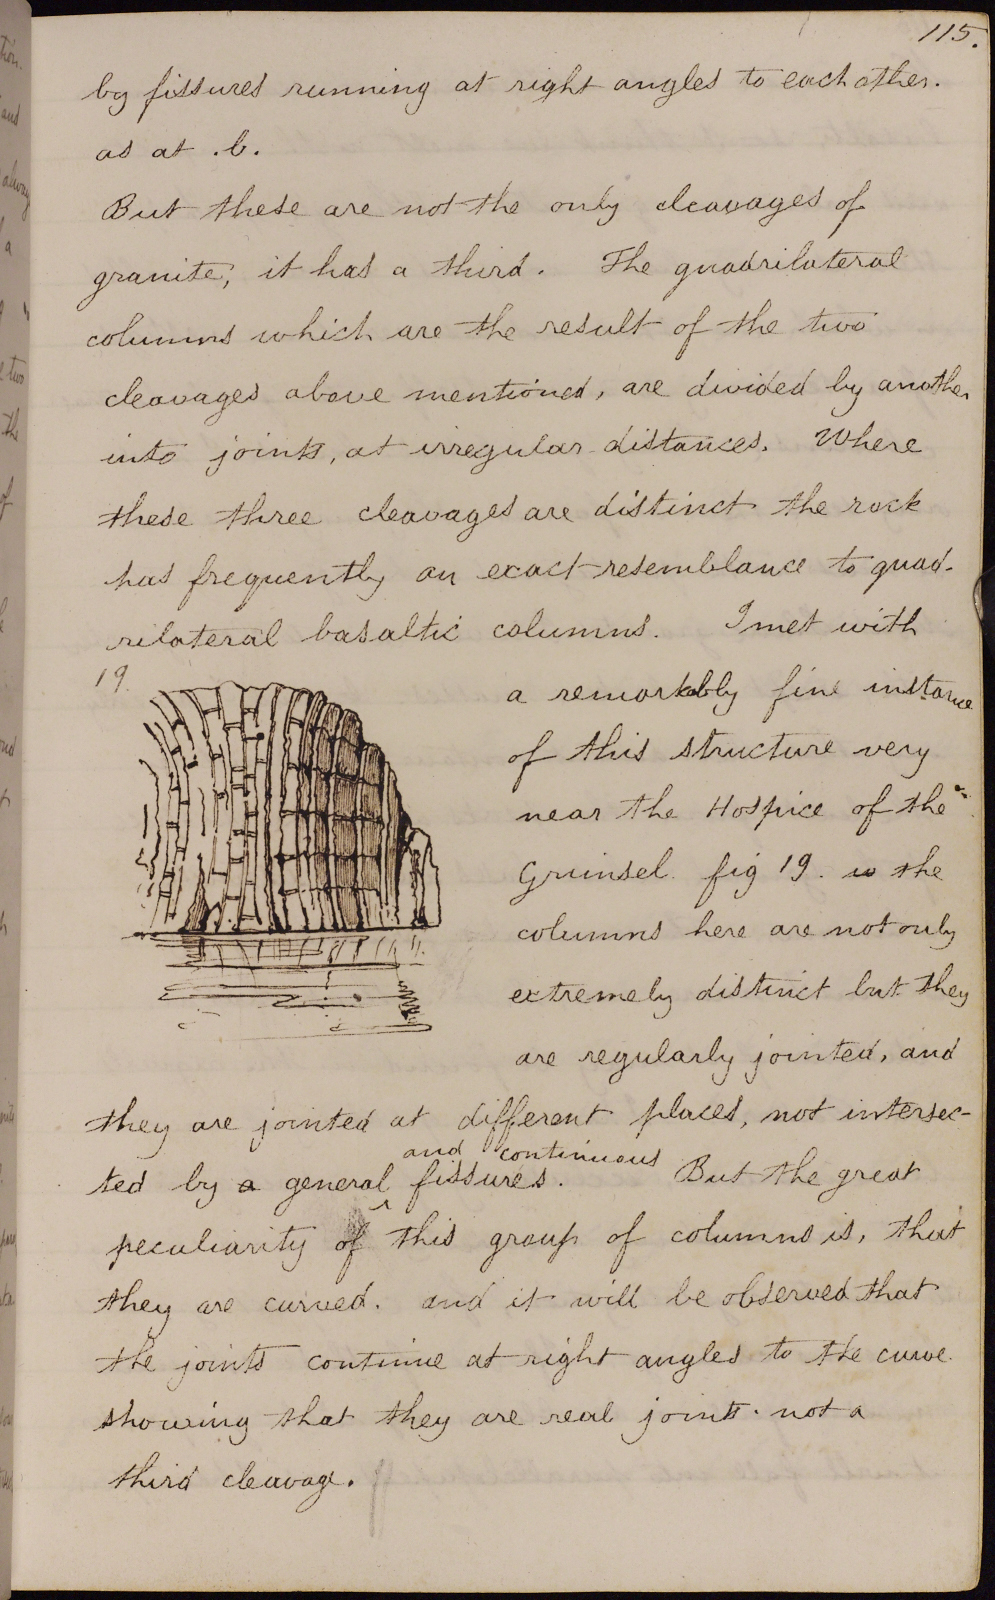 115.
by fissures running at right angles to each other.
as at .b.
But these are not the only cleavages of
granite; it has a third. The quadrilateral
columns which are the result of the two
cleavages above mentioned, are divided by another
into joints, at irregular distances. Where
these three cleavages are distinct the rock
has frequently an exact resemblance to quad-
rilateral basaltic columns. I met with
19.
a remarkably fine instance
of this structure very
near the Hospice of the
Grimsel. fig 19. the
columns here are not only
extremely distinct but they
are regularly jointed, and
they are jointed at different places, not intersec-
and continuous
ted by a general fissures. But the great
peculiarity of this group of columns is, that
they are curved. and it will be observed that
the joints continue at right angles to the curve
showing that they are real joints. not a
third cleavage.